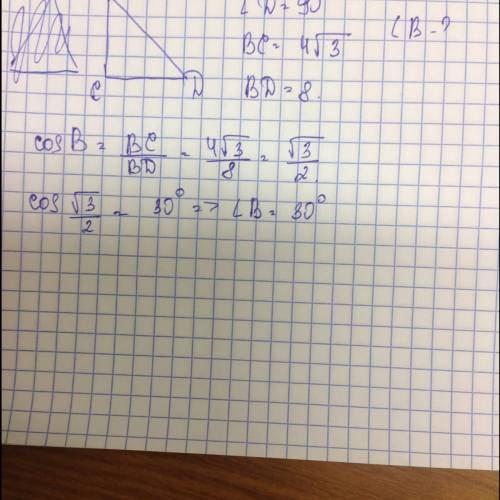 ∠D = 90
BC = 4√3 ∠B - ?
BD = 8.
C D
cos B = BC/BD = 4√3/8 = √3/2.
cos √3/2 = 30° => ∠B = 30°